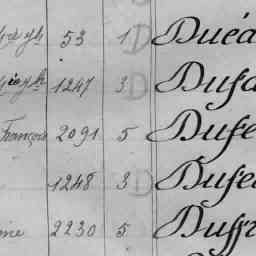 53 1 D Duéa
1247 3 D Dufa
François 2091 5 Dufe
1248 3 D Dufe
2230 5 Duffr